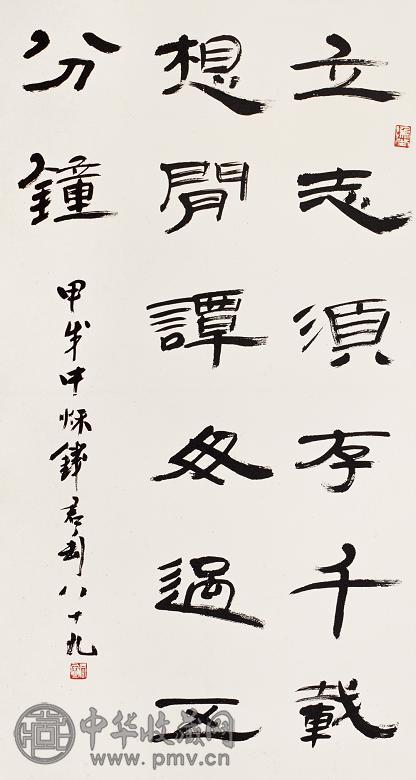 立志須存千載
想閒譚毋過五
分鐘
甲戌中秋錢君匋八十九
中华收藏网
www.pmv.cn